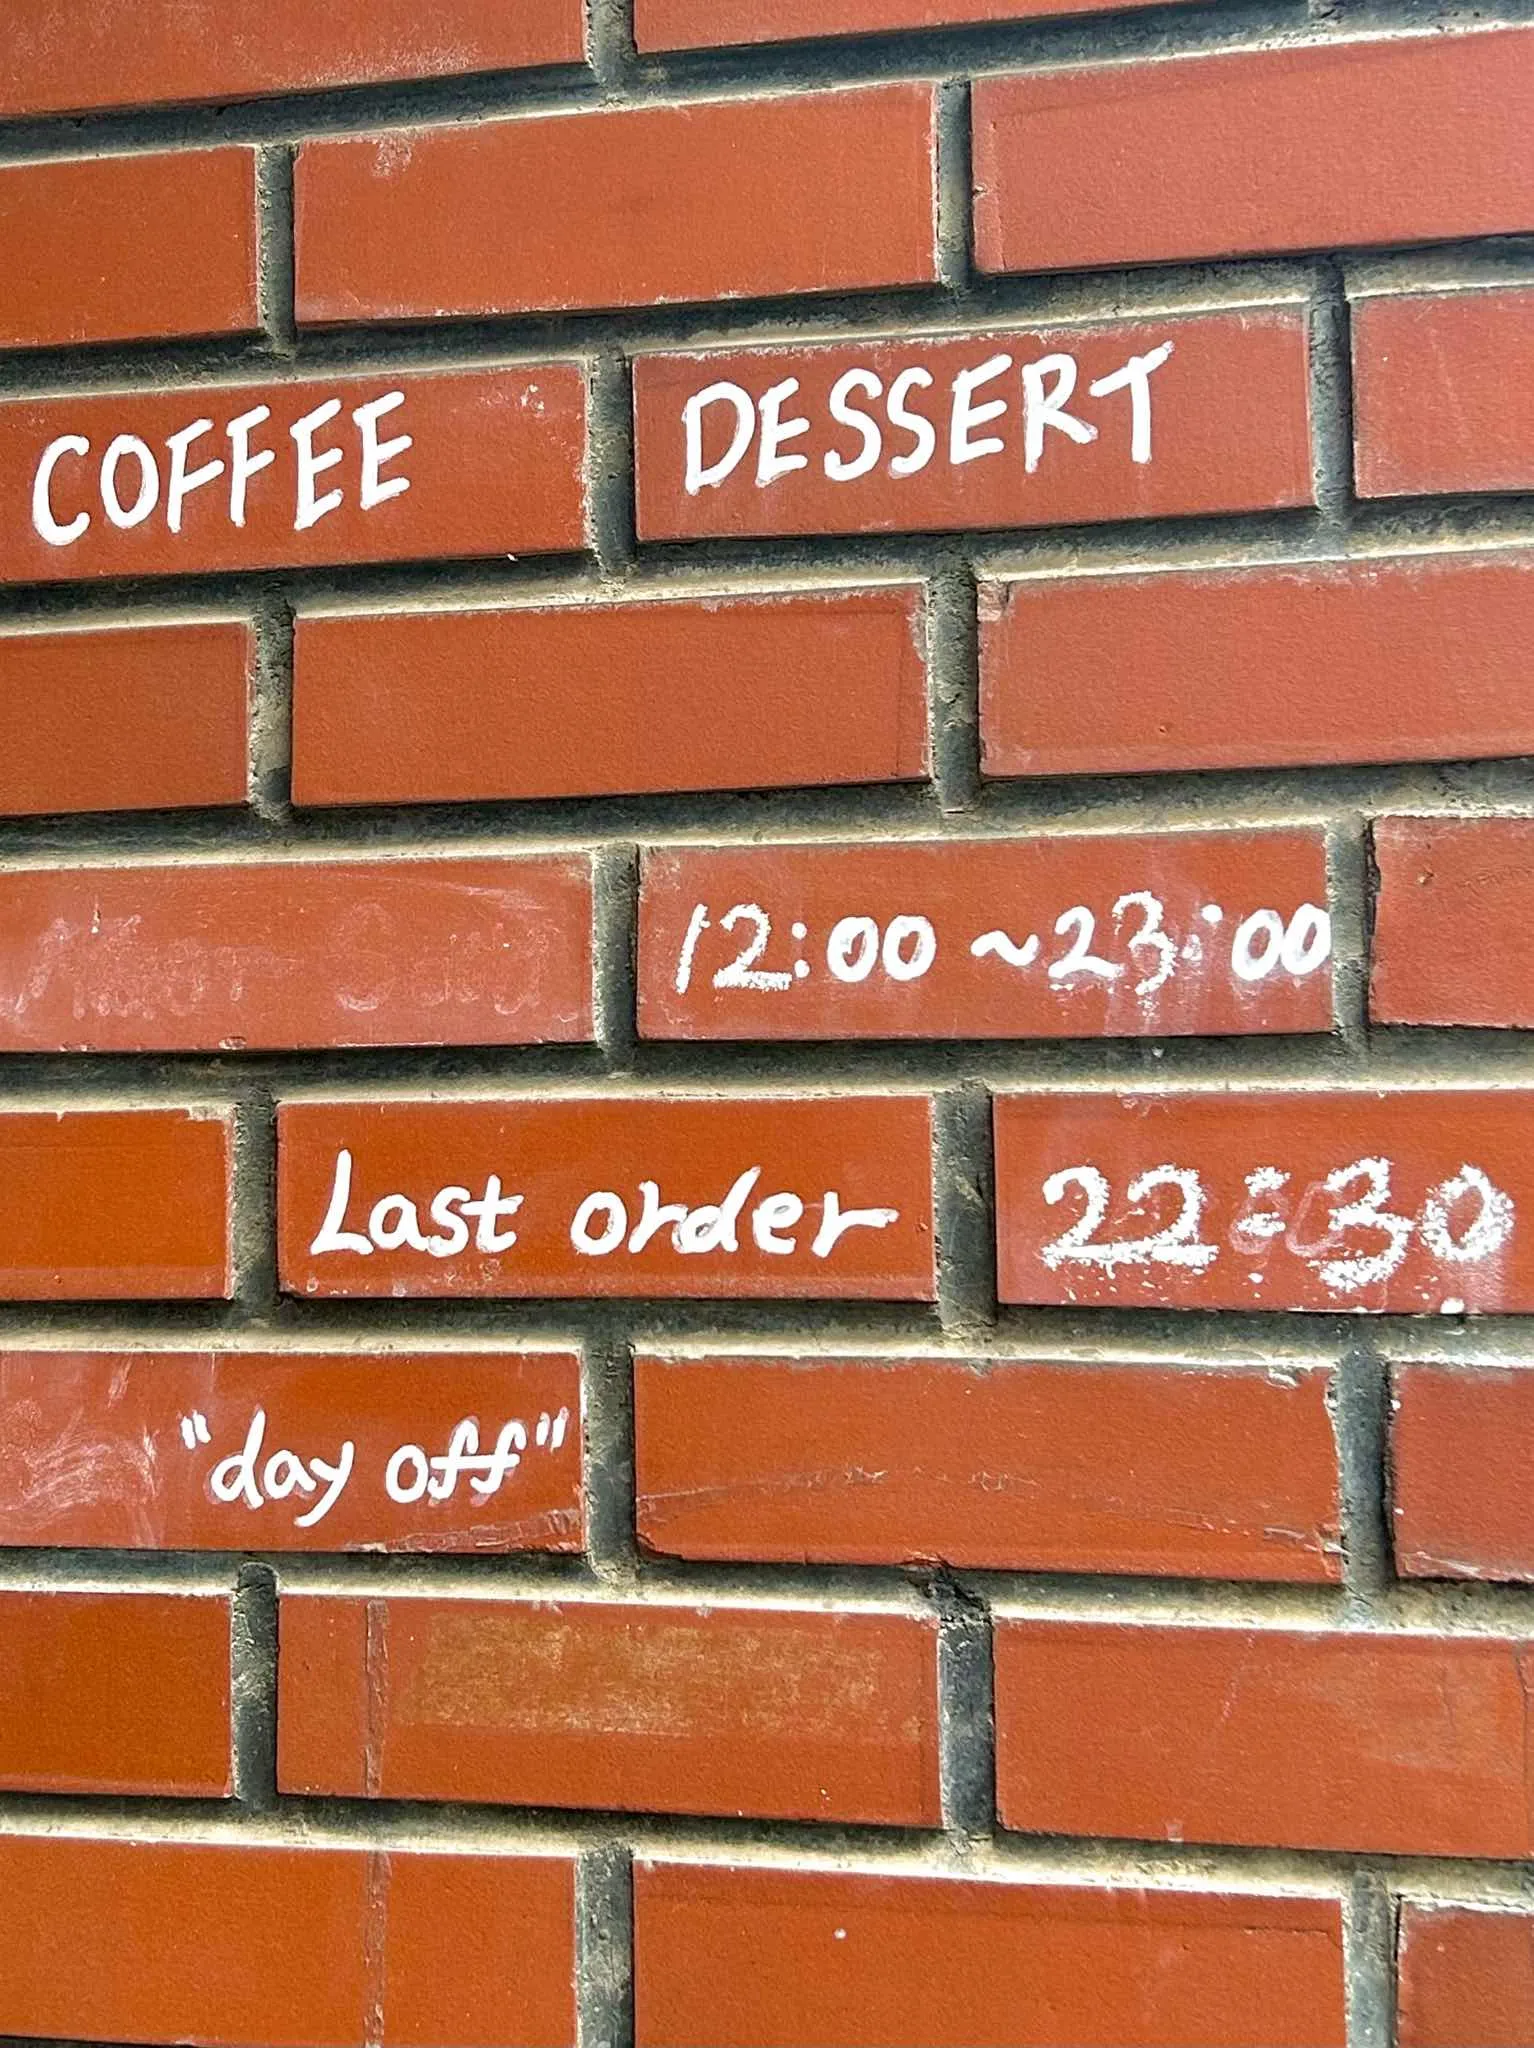 COFFEE DESSERT
12:00 ~ 23:00
Last order 22:30
"day off"